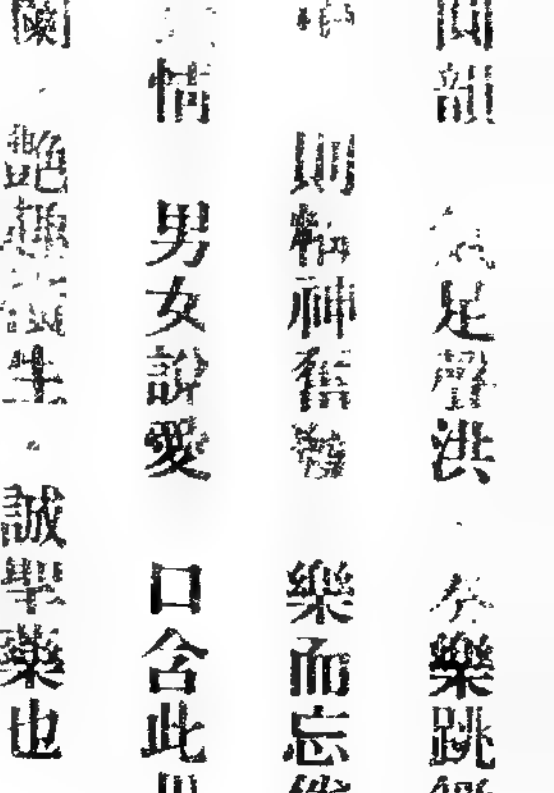 韻 足聲洪 奏樂跳
則 精神奮發 樂而忘
情 男女說愛 口含此
艷趣橫生 誠聖藥也